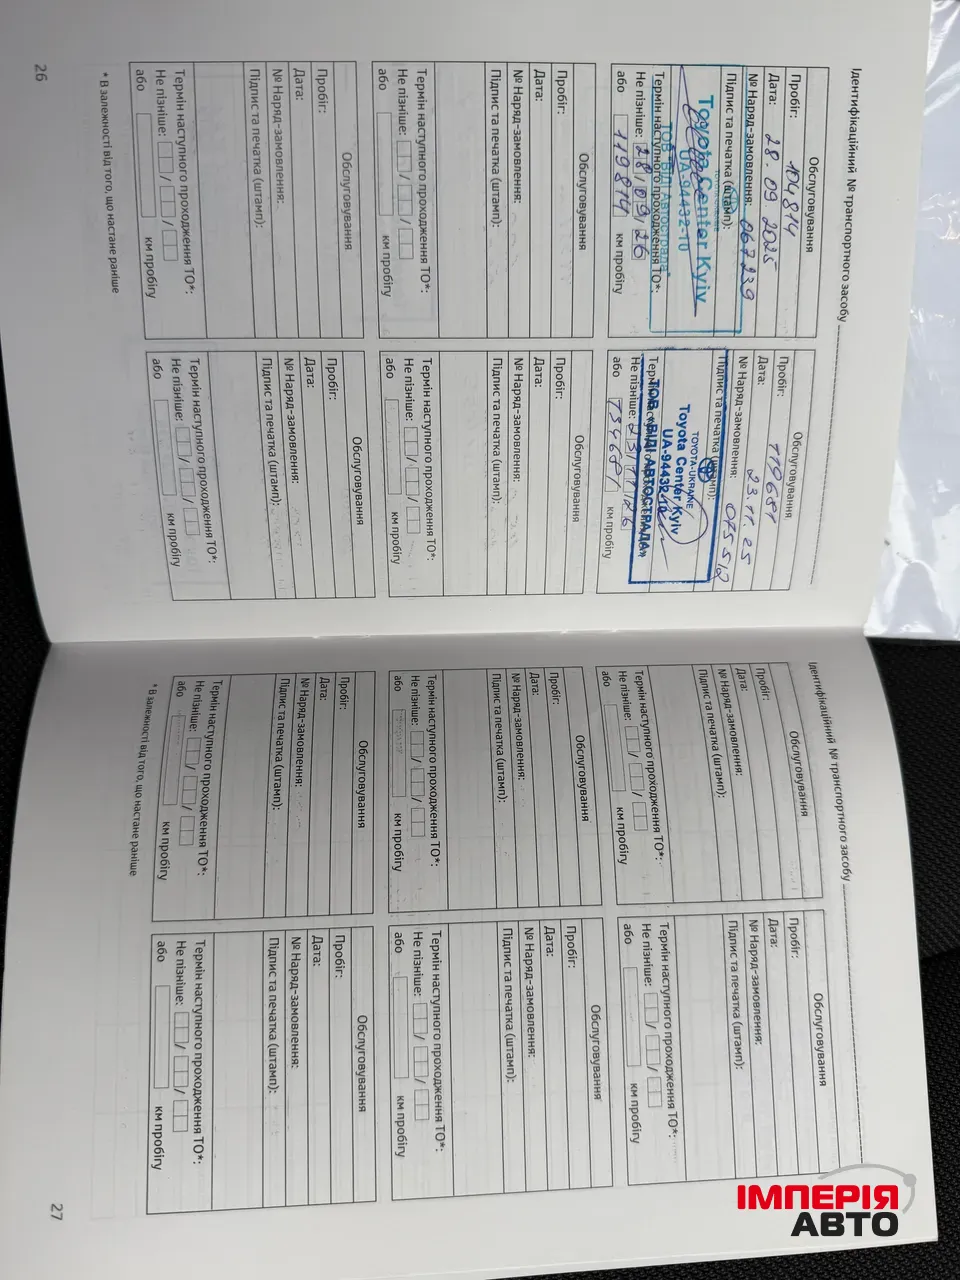 Ідентифікаційний № транспортного засобу
Обслуговування
Пробіг: 104814
Дата: 28.09 2025
№ Наряд-замовлення: 067239
Підпис та печатка (штамп):
Toyota Center Kyiv
UA-94432-10
Термін наступного проходження ТО*:
Не пізніше: 28/09/26
або 119814 км пробігу
Обслуговування
Пробіг: 119681
Дата: 23.11.25
№ Наряд-замовлення: 075512
Підпис та печатка (штамп):
TOYOTA-UKRAINE
Toyota Center Kyiv
UA-94432
ТОВ «ВІДІ АВТОСТРАДА»
Не пізніше: 23/11/26
або 134681 км пробігу
Обслуговування
Пробіг:
Дата:
№ Наряд-замовлення:
Підпис та печатка (штамп):
Термін наступного проходження ТО*:
Не пізніше: / /
або км пробігу
Обслуговування
Пробіг:
Дата:
№ Наряд-замовлення:
Підпис та печатка (штамп):
Термін наступного проходження ТО*:
Не пізніше: / /
або км пробігу
Обслуговування
Пробіг:
Дата:
№ Наряд-замовлення:
Підпис та печатка (штамп):
Термін наступного проходження ТО*:
Не пізніше: / /
або км пробігу
Обслуговування
Пробіг:
Дата:
№ Наряд-замовлення:
Підпис та печатка (штамп):
Термін наступного проходження ТО*:
Не пізніше: / /
або км пробігу
* В залежності від того, що настане раніше
26
Ідентифікаційний № транспортного засобу
Обслуговування
Пробіг:
Дата:
№ Наряд-замовлення:
Підпис та печатка (штамп):
Термін наступного проходження ТО*:
Не пізніше: / /
або км пробігу
Обслуговування
Пробіг:
Дата:
№ Наряд-замовлення:
Підпис та печатка (штамп):
Термін наступного проходження ТО*:
Не пізніше: / /
або км пробігу
Обслуговування
Пробіг:
Дата:
№ Наряд-замовлення:
Підпис та печатка (штамп):
Термін наступного проходження ТО*:
Не пізніше: / /
або км пробігу
Обслуговування
Пробіг:
Дата:
№ Наряд-замовлення:
Підпис та печатка (штамп):
Термін наступного проходження ТО*:
Не пізніше: / /
або км пробігу
Обслуговування
Пробіг:
Дата:
№ Наряд-замовлення:
Підпис та печатка (штамп):
Термін наступного проходження ТО*:
Не пізніше: / /
або км пробігу
Обслуговування
Пробіг:
Дата:
№ Наряд-замовлення:
Підпис та печатка (штамп):
Термін наступного проходження ТО*:
Не пізніше: / /
або км пробігу
* В залежності від того, що настане раніше
27
ІМПЕРІЯ
АВТО